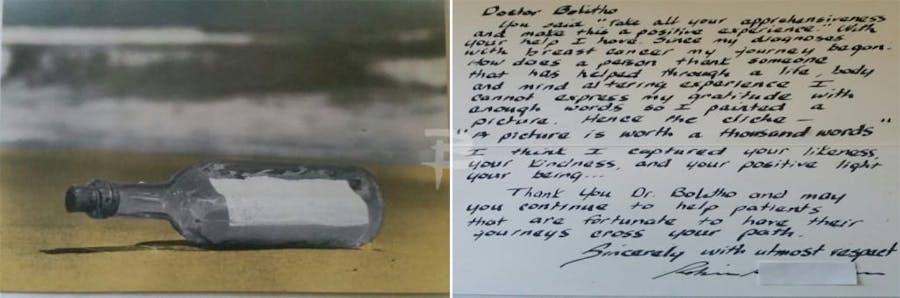 Doctor Bolitho
You said "Take all your apprehensiveness
and make this a positive experience." With
your help I have. Since my diagnoses
with breast cancer my journey began.
How does a person thank someone
that has helped through a life, body
and mind altering experience I
cannot express my gratitude with
enough words so I painted a
picture. Hence the cliche —
"A picture is worth a thousand words"
I think I captured your likeness,
your kindness, and your positive light
your being...
Thank you Dr. Bolitho and may
you continue to help patients
that are fortunate to have their
journeys cross your path.
Sincerely with utmost respect